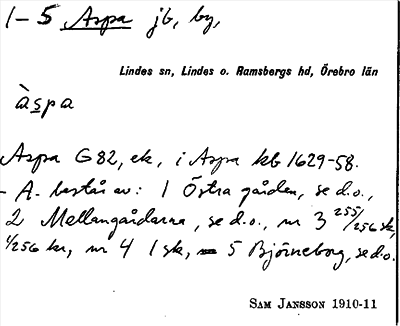 1-5 Aspa jb, by,
Lindes sn, Lindes o. Ramsbergs hd, Örebro län
àspa
Aspa G82, ek, i Aspa kb 1629-58.
- A. består av: 1 Östra gården, se d.o.,
2 Mellangårdarna, se d.o., nr 3 255/256 sk,
1/256 kr, nr 4 1 sk, 5 Björneborg, se d.o.
SAM JANSSON 1910-11